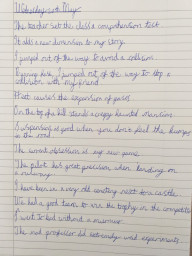 Wednesday 20th May
The teacher set the class a comprehension test
It adds a new dimension to my story.
I jumped out of the way to avoid a collision
I jumped out of the way to stop a
collision with my friend
Heat causes the expansion of gases
On the top of a hill stands a creepy haunted mansion.
Suspension is good when you don't feel the bumps
in the road.
The pilot has great precision when landing on
a runway
I have been in a very old next to a castle.
We had a good team to win the trophy in the
I went to bed without a
The mad professor did extremely weird experiments.